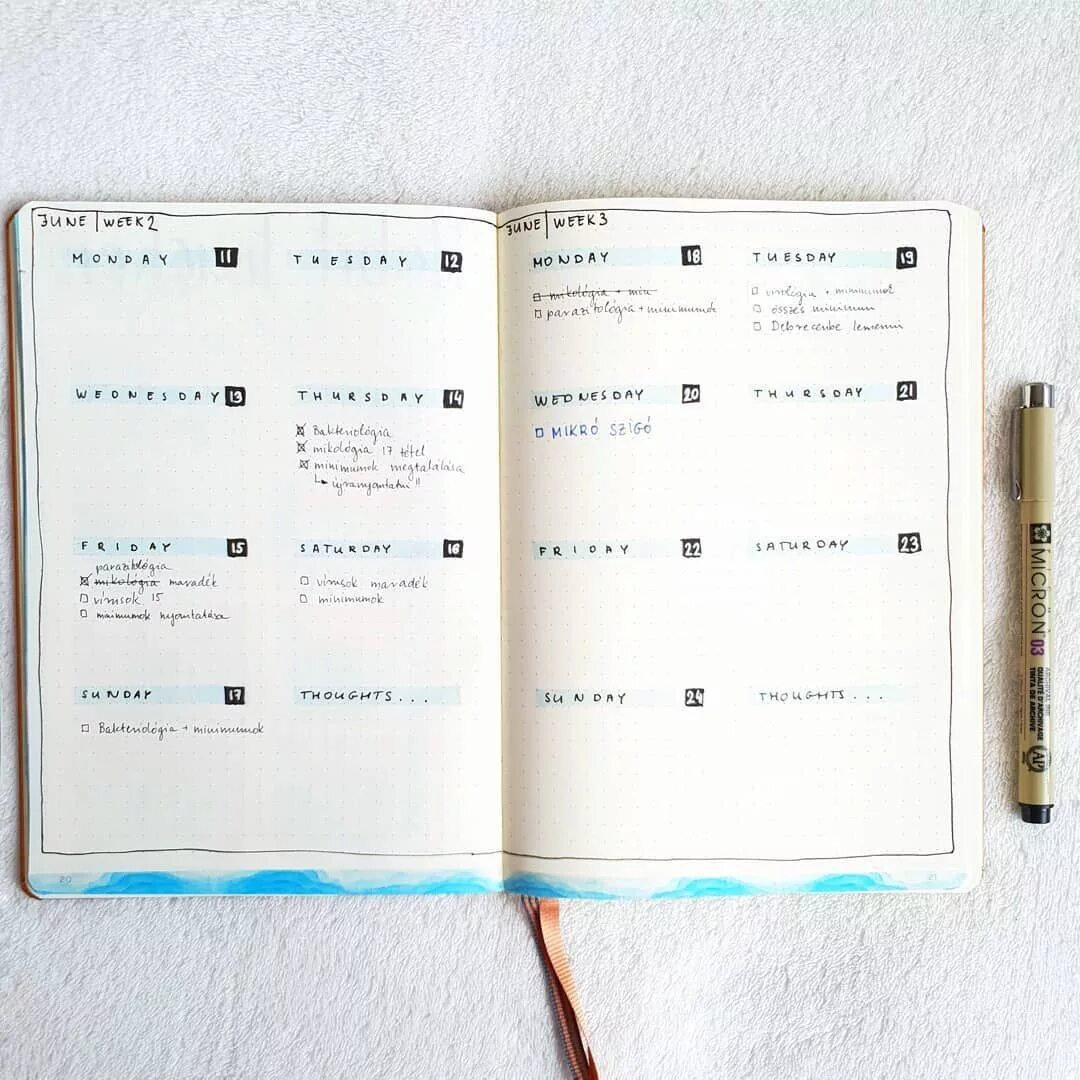 JUNE | WEEK 2
MONDAY 11
TUESDAY 12
WEDNESDAY 13
THURSDAY 14
Bakteriológia
mikológia 17 tétel
minimumok megtalálása
újranyomtatni !!
FRIDAY 15
parazitológia
mikológia maradék
vírusok 15
minimumok nyomtatása
SATURDAY 16
vírusok maradék
minimumok
SUNDAY 17
Bakteriológia + minimumok
THOUGHTS...
20
JUNE | WEEK 3
MONDAY 18
mikológia + min
parazitológia + minimumok
TUESDAY 19
virológia + minimumok
összes minimum
Debrecenbe lemenni
WEDNESDAY 20
MIKRÓ SZIGÓ
THURSDAY 21
FRIDAY 22
SATURDAY 23
SUNDAY 24
THOUGHTS...
21
MICRON 03
QUALITÉ D'ARCHIVAGE
TINTA DE ARCHIVE
AP